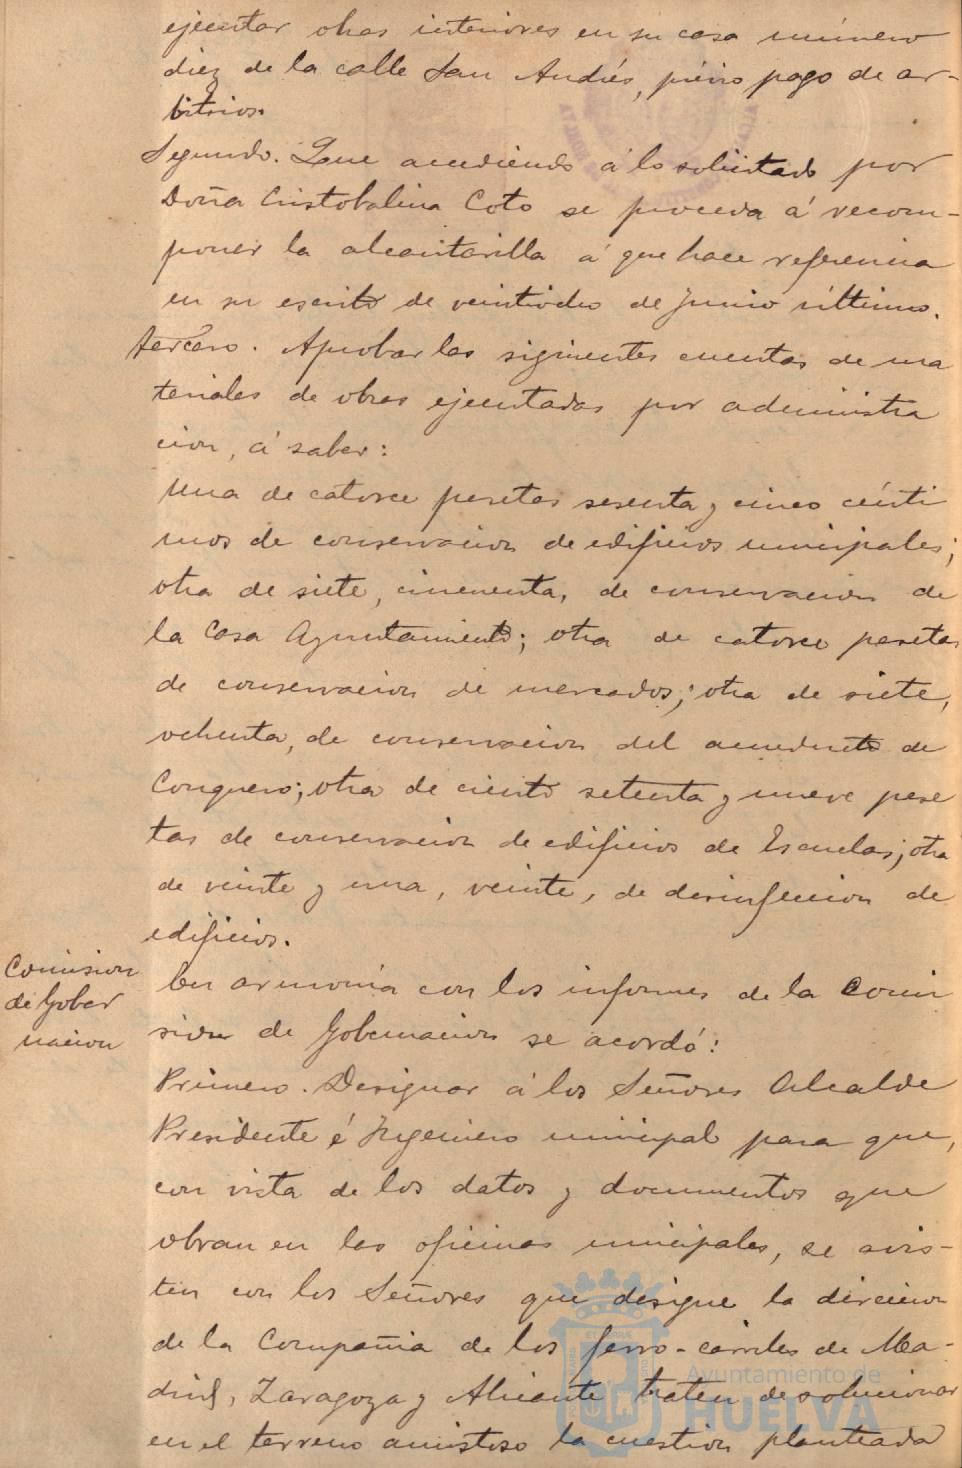 ejecutar obras interiores en su casa número
diez de la calle San Andrés, previo pago de ar-
bitrios.
Segundo. Que accediendo á lo solicitado por
Doña Cristobalina Coto se proceda á recom-
poner la alcantarilla á que hace referencia
en su escrito de veintiocho de Junio último.
tercero. Aprobar las siguientes cuentas de ma
teriales de obras ejecutadas por administra
cion, á saber:
Una de catorce pesetas sesenta y cinco cénti
mos de conservacion de edificios municipales;
otra de siete, cincuenta, de conservacion de
la Casa Ayuntamiento; otra de catorce pesetas
de conservacion de mercados; otra de siete,
ochenta, de conservacion del acueducto de
Conquero; otra de ciento setenta y nueve pese
tas de conservacion de edificios de Escuelas; otra
de veinte y una, veinte, de desinfeccion de
edificios.
Comision
de Gober
nacion
En armonía con los informes de la Comi
sion de Gobernacion se acordó:
Primero. Designar á los Señores Alcalde
Presidente é Ingeniero municipal para que,
con vista de los datos y documentos que
obran en las oficinas municipales, se avis-
ten con los Señores que designe la direccion
de la Compañia de los ferro-carriles de Ma-
drid, Zaragoza y Alicante traten de solucionar
en el terreno amistoso la cuestion planteada
Ayuntamiento de
HUELVA